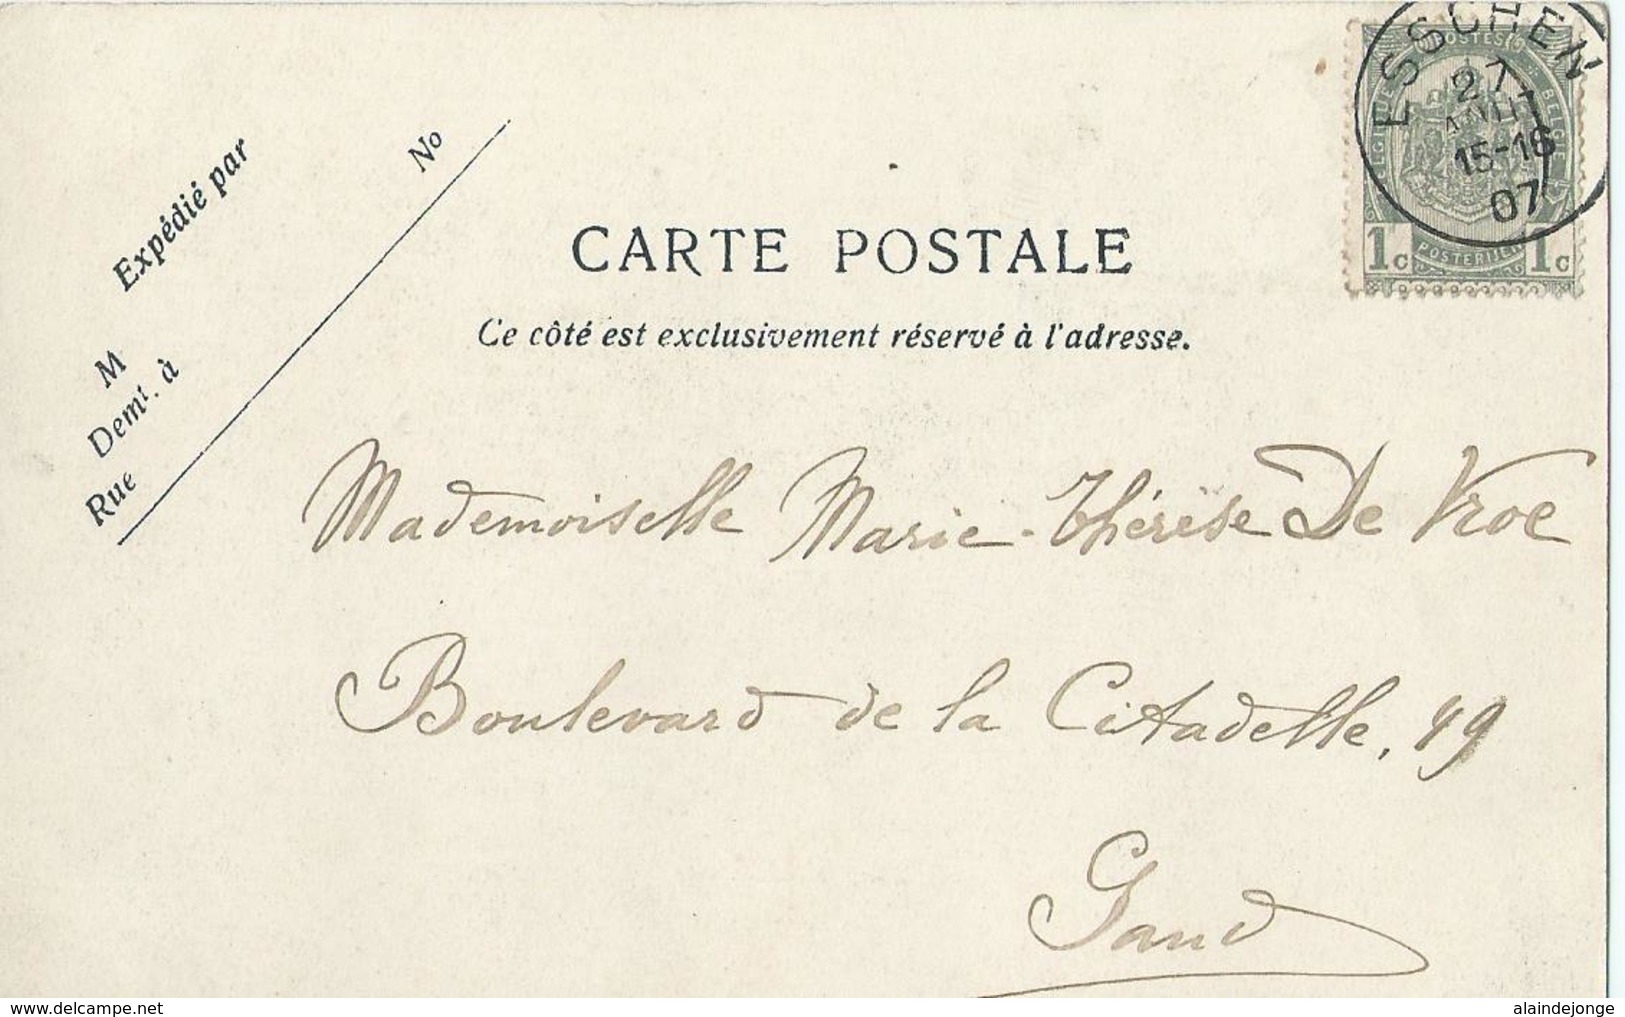 ESSCHEN
27
AOUT
15-16
07
POSTES
BELGIQUE BELGIË
1c POSTERIJEN 1c
Expédié par
No
M
Demt. à
Rue
CARTE POSTALE
Ce côté est exclusivement réservé à l'adresse.
Mademoiselle Marie-Thérèse De Vroe
Boulevard de la Citadelle, 49
Gand
www.delcampe.net
alaindejonge